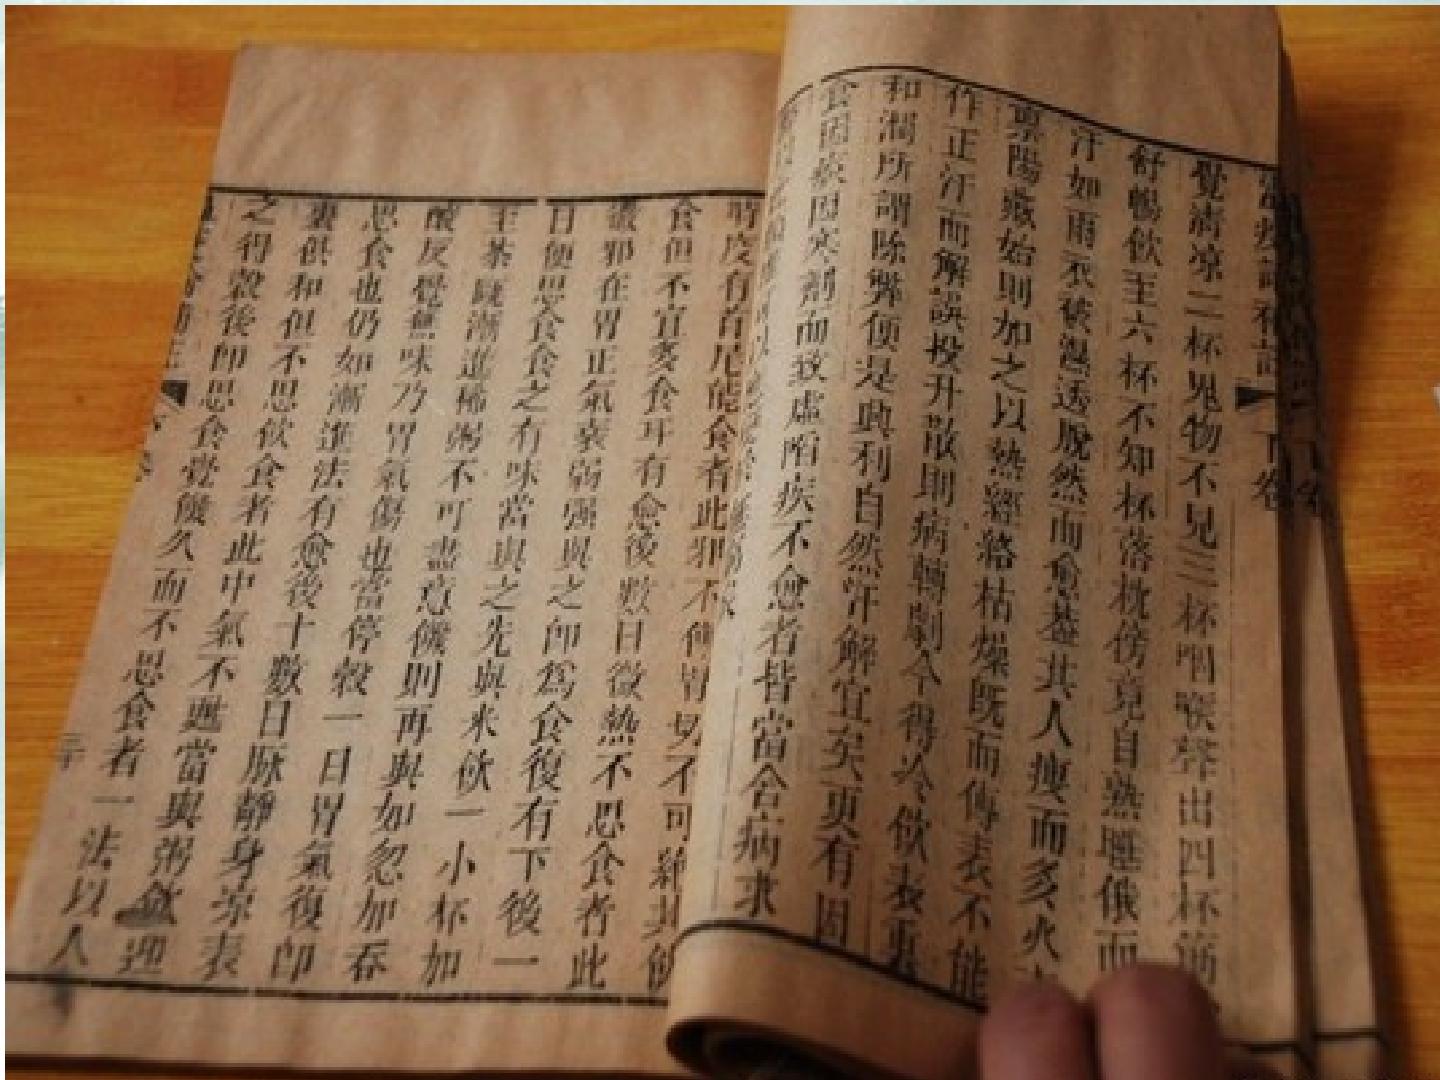 下卷
覺清凉二杯鬼物不見三杯咽喉聲出四杯筋
舒暢飲主六杯不知杯落枕傍竟自熟睡俄而
汗如雨衣被濕透脫然而愈蓋其人瘦而多火
禀陽臟始則加之以熱經絡枯燥既而傳表不能
作正汗而解誤投升散則病轉劇今得冷飲表裏
和潤所謂除弊便是興利自然汗解宜矣更有因
食因痰因寒劑而致虛陷疾不愈者皆當舍病求
時疫有首尾能食者此邪不傳胃切不可絕其飲
食但不宜多食耳有愈後數日微熱不思食者此
微邪在胃正氣衰弱强與之即爲食復有下後一
日便思食食之有味當與之先與米飲一小杯加
主茶甌漸進稀粥不可盡意饑則再與如忽加吞
酸反覺無味乃胃氣傷也當停穀一日胃氣復即
思食也仍如漸進法有愈後十數日脉靜身凉表
裏俱和但不思飲食者此中氣不甦當與粥飲迎
之得穀後即思食覺饑久而不思食者一法以人